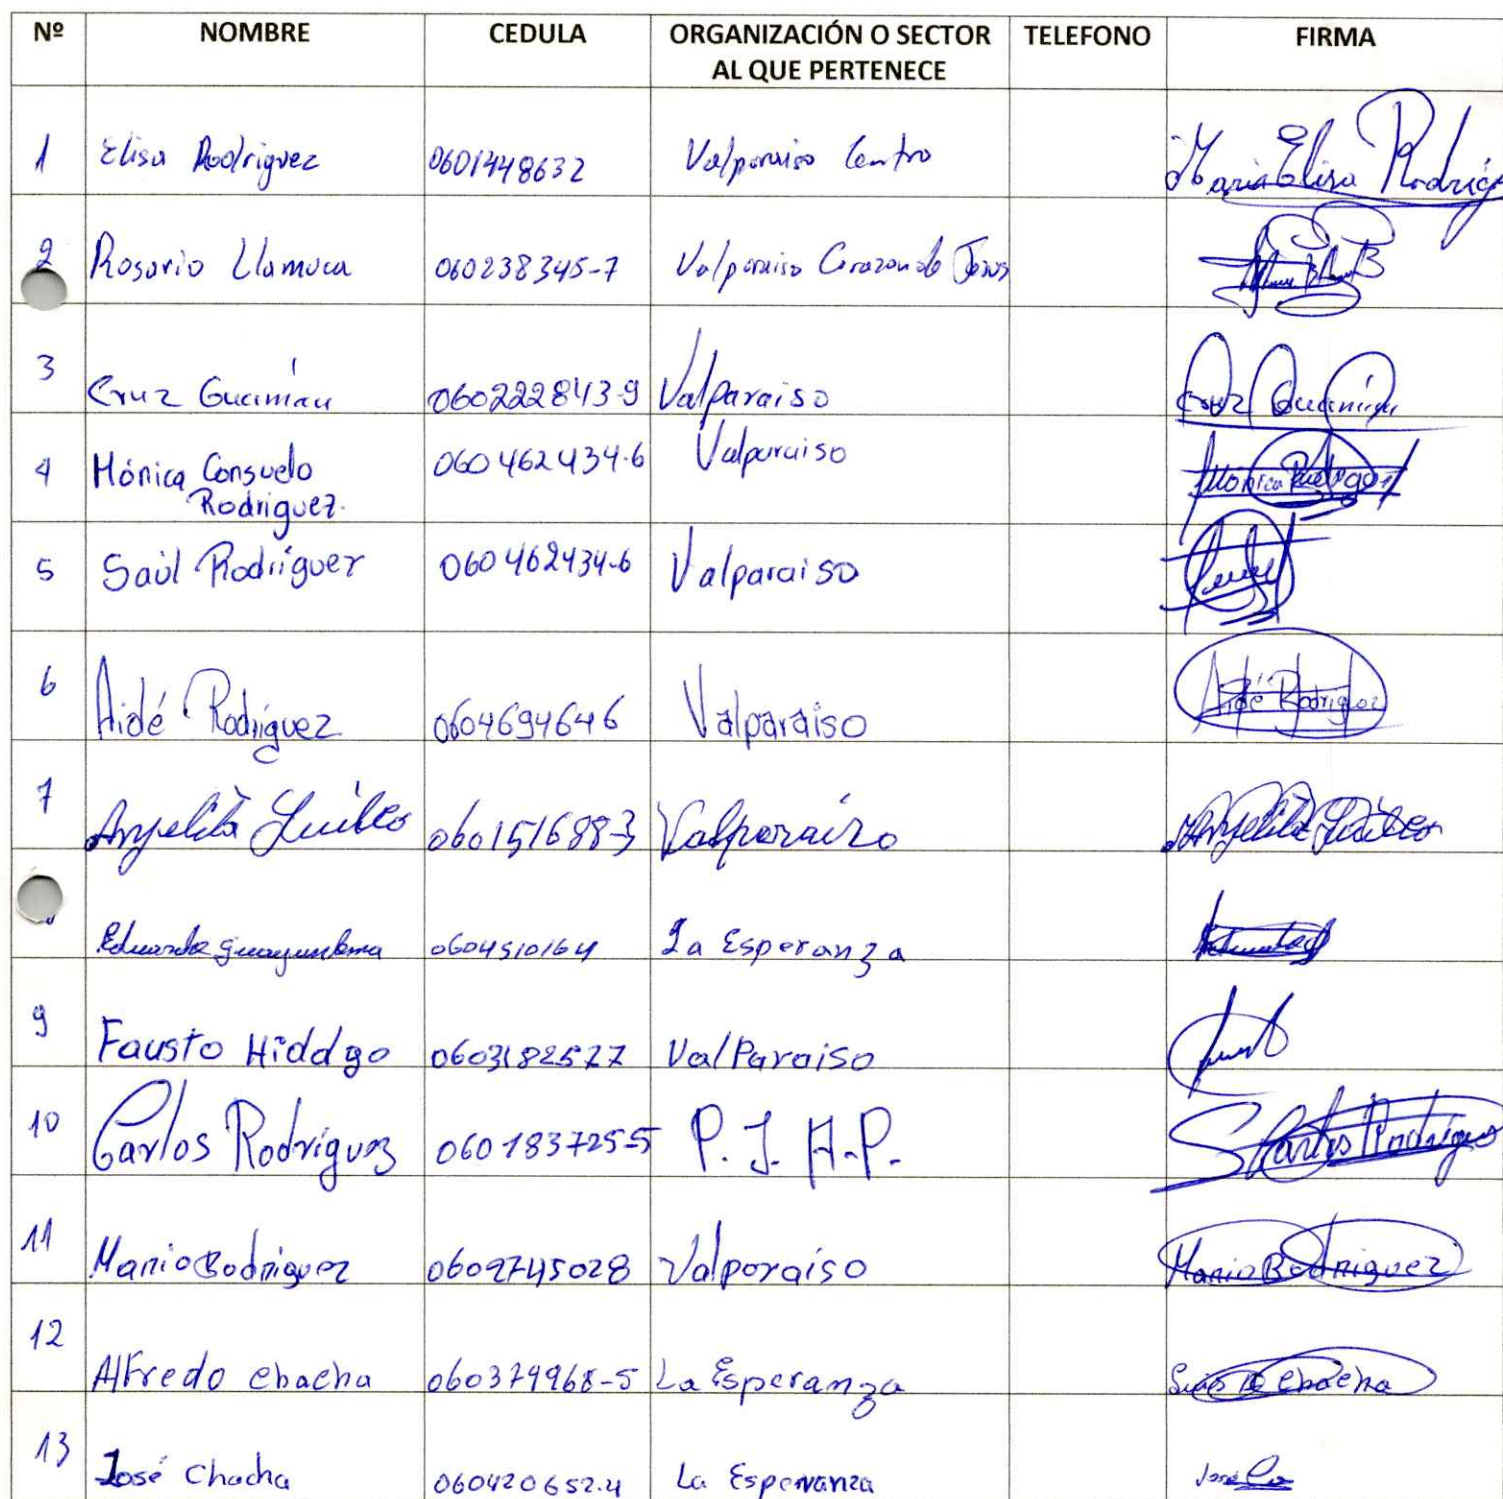 Nº NOMBRE CEDULA ORGANIZACIÓN O SECTOR TELEFONO FIRMA
AL QUE PERTENECE
1 Elisa Rodriguez 0601448632 Valparaiso Centro Maria Elisa Rodríg
2 Rosario Llamuca 060238345-7 Valparaiso Corazon de Jesus
3 Cruz Guamán 060222843-9 Valparaiso Cruz Guamán
4 Mónica Consuelo 060462434-6 Valparaiso Mónica Rodríguez
Rodriguez.
5 Saúl Rodríguez 060462434-6 Valparaiso
6 Aidé Rodríguez 0604694646 Valparaiso Aidé Rodríguez
7 Angelita 060151688-3 Valparaiso Angelita
Eduardo 0604510164 La Esperanza
9 Fausto Hidalgo 0603182527 ValParaiso
10 Carlos Rodríguez 060183725-5 P. J. A.P. Carlos Rodriguez
11 Mario Rodriguez 0602745028 Valporaiso Mario Rodriguez
12 Alfredo chacha 060379968-5 La Esperanza Chacha
13 José Chacha 060420652.4 La Esperanza José